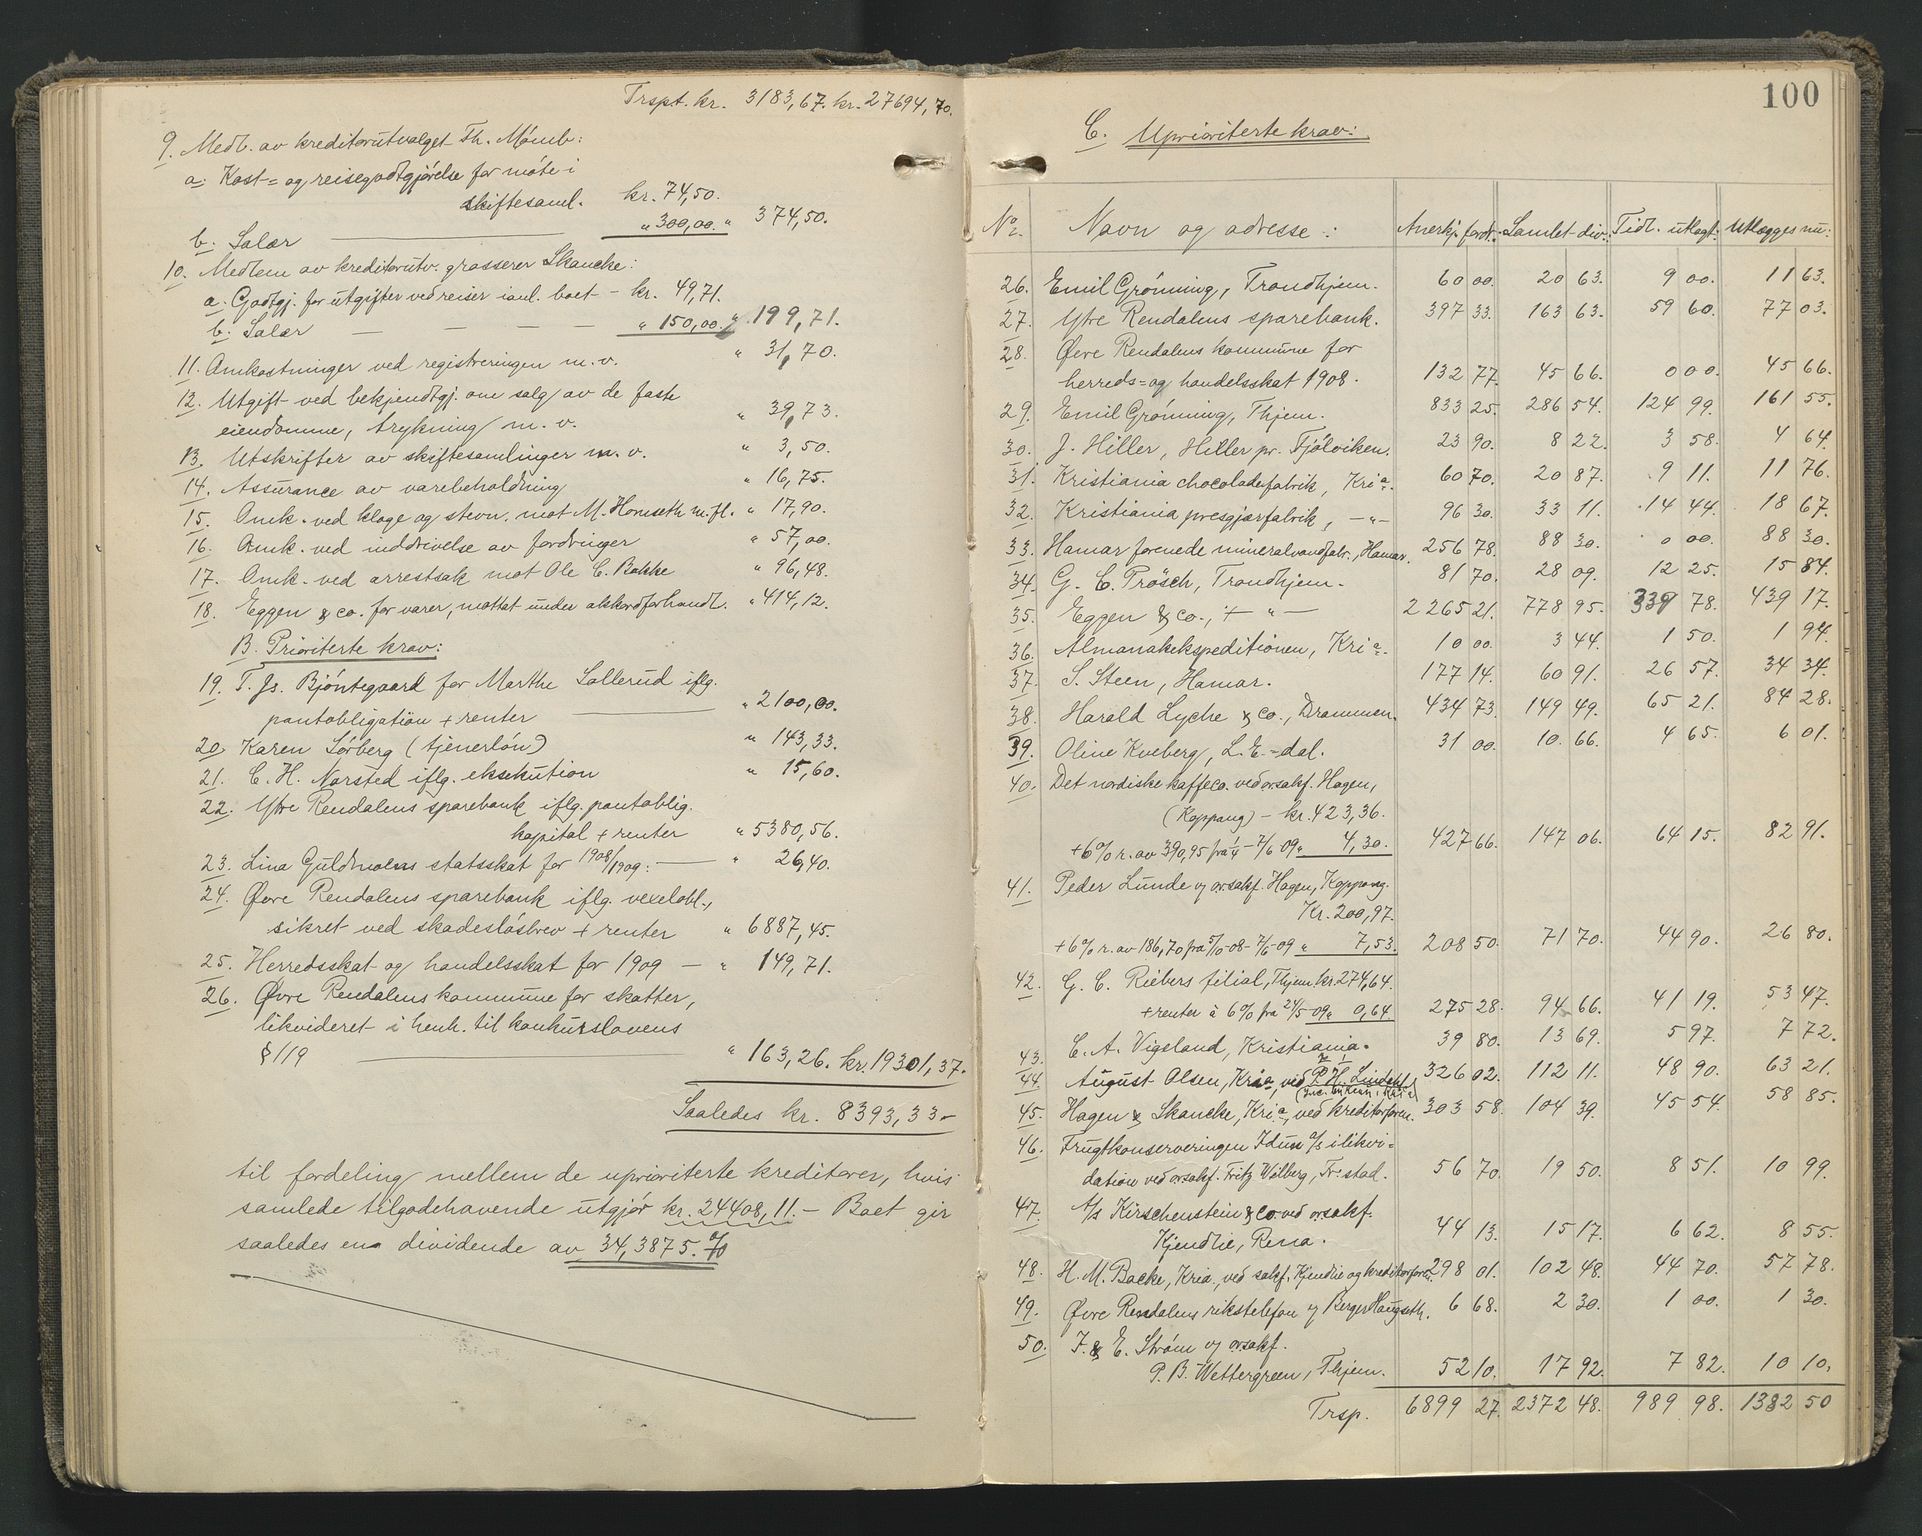 Trspt. kr. 3183,67. kr. 27694,70.
9. Medl. av kreditorutvalget Th. Mømb:
a. Kost= og reisegodtgjørelse for møte i
skiftesaml. kr. 74,50.
b. Salær " 300,00. " 374,50.
10. Medlem av kreditorutv. grosserer Skancke:
a. Godtgj. for utgifter ved reiser i anl. boet - kr. 49,71.
b. Salær - - - - " 150,00. " 199,71.
11. Omkostninger ved registreringen m. v. " 31,70.
12. Utgift ved bekjendtgj. om salg av de faste
eiendomme, trykning m. v. " 39,73.
13. Utskrifter av skiftesamlinger m. v. " 3,50.
14. Assurance av varebeholdning " 16,75.
15. Omk. ved klage og stevn. mot M. Hornseth m. fl. " 17,90.
16. Omk. ved inddrivelse av fordringer " 57,00.
17. Omk. ved arrestsak mot Ole C. Bakke " 96,48.
18. Eggen & co. for varer, mottat under akkordforhandl. " 414,12.
B. Prioriterte krav:
19. T. Js. Bjøntegaard for Marthe Sollerud iflg.
pantobligation + renter " 2100,00.
20. Karen Sørberg (tjenerløn) " 143,33.
21. C. H. Norsted iflg. eksekution " 15,60.
22. Ytre Rendalens sparebank iflg. pantoblig.
kapital + renter " 5380,56.
23. Lina Guldholms statsskat for 1908/1909: " 26,40.
24. Øvre Rendalens sparebank iflg. vexelobl.,
sikret ved skadesløsbrev + renter " 6887,45.
25. Herredsskat og handelsskat for 1909 - " 149,71.
26. Øvre Rendalens kommune for skatter,
likvideret i henh. til konkurslovens
§ 119 " 163,26. kr. 19301,37.
Saaledes kr. 8393,33-
til fordeling mellem de uprioriterte kreditorer, hvis
samlede tilgodehavende utgjør kr. 24408,11. - Boet gir
saaledes en dividende av 34,3875. %
100
C. Uprioriterte krav:
No. Navn og adresse: Anerkj. fordr. Samlet div: Tidl. utlagt: Utlægges nu:
26. Emil Grønning, Trondhjem. 60 00. 20 63. 9 00. 11 63.
27. Ytre Rendalens sparebank. 397 33. 163 63. 59 60. 77 03.
28. Øvre Rendalens kommune for
herreds= og handelsskat 1908. 132 77. 45 66. 0 00. 45 66.
29. Emil Grønning, Thjem. 833 25. 286 54. 124 99. 161 55.
30. J. Hiller, Hiller pr. Fjølviken. 23 90. 8 22. 3 58. 4 64.
31. Kristiania chocoladefabrik, Kria. 60 70. 20 87. 9 11. 11 76.
32. Kristiania presgjærfabrik, -"- 96 30. 33 11. 14 44. 18 67.
33. Hamar forenede mineralvandfabr., Hamar. 256 78. 88 30. 0 00. 88 30.
34. G. C. Prøsch, Trondhjem. 81 70. 28 09. 12 25. 15 84.
35. Eggen & co., + -"- 2265 21. 778 95. 339 78. 439 17.
36. Almanakekspeditionen, Kria. 10 00. 3 44. 1 50. 1 94.
37. S. Steen, Hamar. 177 14. 60 91. 26 57. 34 34.
38. Harald Lyche & co., Drammen. 434 73. 149 49. 65 21. 84 28.
39. Oline Kveberg, L. E.=dal. 31 00. 10. 66. 4 65. 6 01.
40. Det nordiske kaffeco. ved orsakf. Hagen,
(Koppang) - kr. 423,36.
+ 6% r. av 390,95 fra 1/4 - 7/6 09 " 4,30. 427 66. 147 06. 64 15. 82 91.
41. Peder Lunde v/ orsakf. Hagen, Koppang.
Kr. 200,97.
+ 6% r. av 186,70 fra 5/10-08 - 7/6-09 " 7,53. 208 50. 71 70. 44 90. 26 80.
42. G. C. Riebers filial, Thjem kr. 274,64.
+ renter à 6% fra 24/5-09 " 0,64. 275 28. 94 66. 41 19. 53 47.
43. C. A. Vigeland, Kristiania. 39 80. 13 69. 5 97. 7 72.
44. August Olsen, Kria, ved P. H. Lindahl 326 02. 112 11. 48 90. 63 21.
45. Hagen & Skancke, Kria, ved kreditorforen. 303 58. 104 39. 45 54. 58 85.
46. Frugtkonserveringen Idun a/s i likvi=
dation ved orsakf. Fritz Wilberg, Fr.stad. 56 70. 19 50. 8 51. 10 99.
47. A/s Kirschenstein & co. ved orsakf.
Kjendlie, Rena. 44 13. 15 17. 6 62. 8 55.
48. H. M. Backe, Kria, ved sakf. Kjendlie og kreditorforen. 298 01. 102 48. 44 70. 57 78.
49. Øvre Rendalens rikstelefon v/ Berger Haugseth. 6 68. 2 30. 1 00. 1 30.
50. F. & E. Strøm v/ orsakf.
P. B. Wettergreen, Thjem. 52 10. 17 92. 7 82. 10 10.
Trsp. 6899 27. 2372 48. 989 98. 1382 50